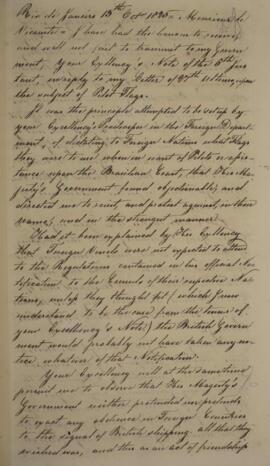 Rio de Janeiro 13th Oct 1835 - Monsieur le
Vicomte - I have had the honor to receive,
and will not fail to transmit to my Govern
ment, Your Excellency's Note of the 5th Ins
tant, in reply to my Letter of 20th Ultimo, upon
the subject of Pilot-Flags.
It was the principle attempted to be set up by
your Excellency's Predecessor in the Foreign Depart
ment, of dictating to Foreign Nations what Flags
they were to use when in want of Pilots or assis-
tance upon the Brazilian Coast, that His Ma-
jesty's Government found objectionable; and
directed me to resist, and protest against, in their
names, and in the strongest manner.
Had it been explained by His Excellency
that Foreign Vessels were not expected to attend
to the Regulations contained in his official No-
tification to the Consuls of their respective Na-
tions, unless they thought fit (which I now
understand to be the case from the tenor of
your Excellency's Note) the British Govern
ment would probably not have taken any no
tice whatever of that Notification.
Your Excellency will at the same time
permit me to observe that His Majesty's
Government neither pretended nor pretends
to exact any obedience in Foreign Countries
to the signal of British shipping: all that they
wished was, and this as an act of friendship